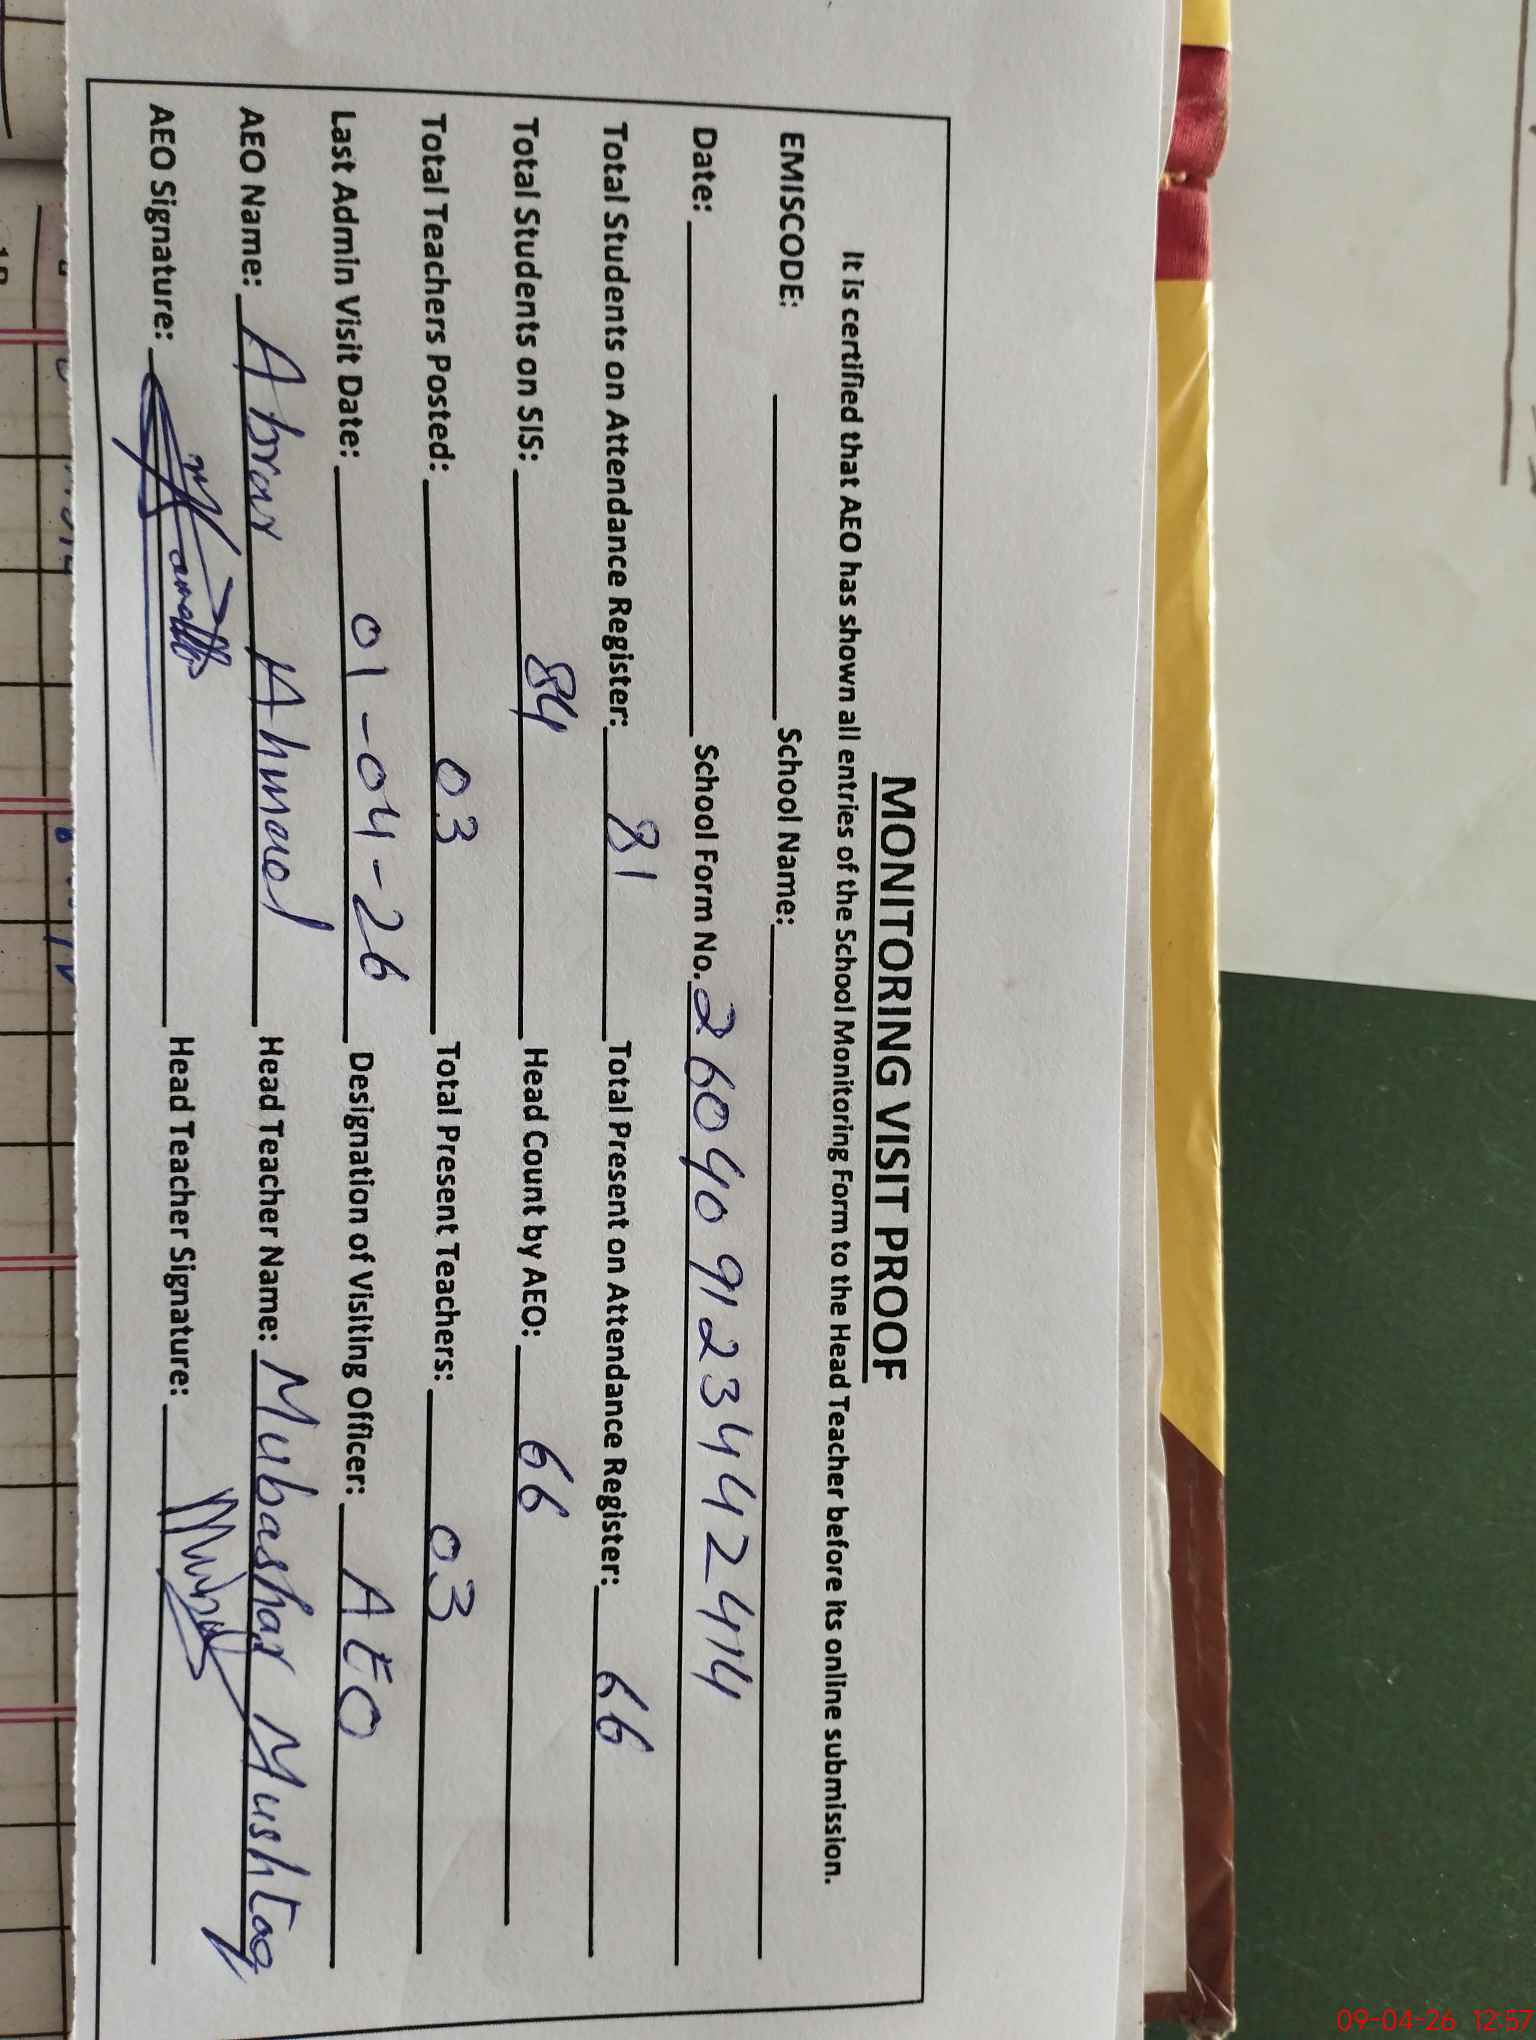 MONITORING VISIT PROOF
It is certified that AEO has shown all entries of the School Monitoring Form to the Head Teacher before its online submission.
EMISCODE: School Name:
Date: School Form No. 260409123442414
Total Students on Attendance Register: 81 Total Present on Attendance Register: 66
Total Students on SIS: 84 Head Count by AEO: 66
Total Teachers Posted: 03 Total Present Teachers: 03
Last Admin Visit Date: 01-04-26 Designation of Visiting Officer: AEO
AEO Name: Abrar Ahmed Head Teacher Name: Mubashar Mushtaq
AEO Signature: Head Teacher Signature:
09-04-26 12:57